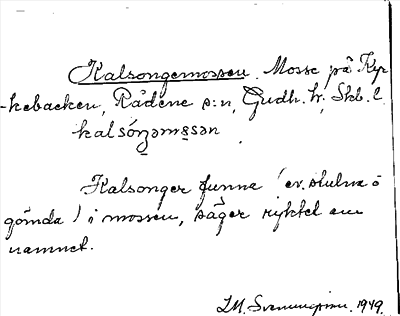 Kalsongemossen. Mosse på Kyr-
kebacken, Rådene s:n, Gudh. hr, Skb. l.
kalsóŋəmɛsən
Kalsonger funna (ev. stulna o
gömda) i mossen, säger ryktet om
namnet.
1949.